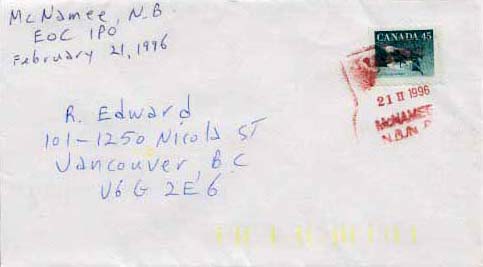 McNamee, N.B.
EOC IPO
February 21, 1996
CANADA 45
21 II 1996
McNAMEE
N.B./N.
R. Edward
101-1250 Nicola ST
Vancouver, B.C
V6G 2E6